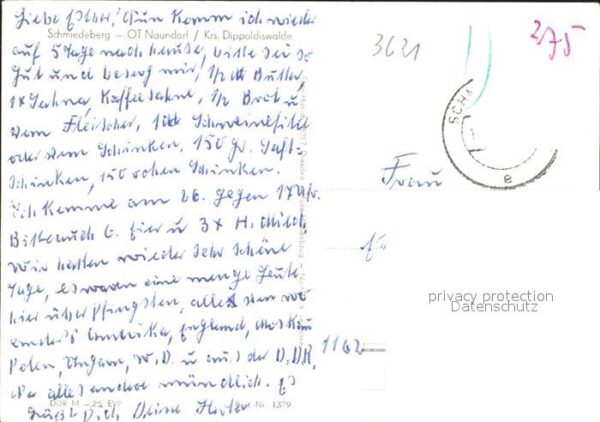 Liebe Esther, Nun komm ich wieder
Schmiedeberg — OT Naundorf / Krs. Dippoldiswalde
auf 5 Tage nach hause, bitte sei so
gut und besorg mir, 1/2 Butter,
1x Sahne, Kaffeesahne, 1/2 Brot u
vom Fleischer, Schweinefilet
oder vom Schinken, 150 gr. Saft-
Schinken, 150 rohen Schinken.
Ich komme am 26. gegen 17 Uhr.
Bitte auch 6 Eier u 3x H. Milch
Wir hatten wieder sehr schöne
Tage, es waren eine menge Leute
hier über Pfingsten, alles
Amerika, England, Moskau
Polen, Ungarn, W.D. u aus der D.D.R.
alles andere mündlich. Es
grüßt Dich Deine
DDR M —,25 EVP
Nr. 1379
3621
275
SCH
e
Frau
privacy protection
Datenschutz
1162